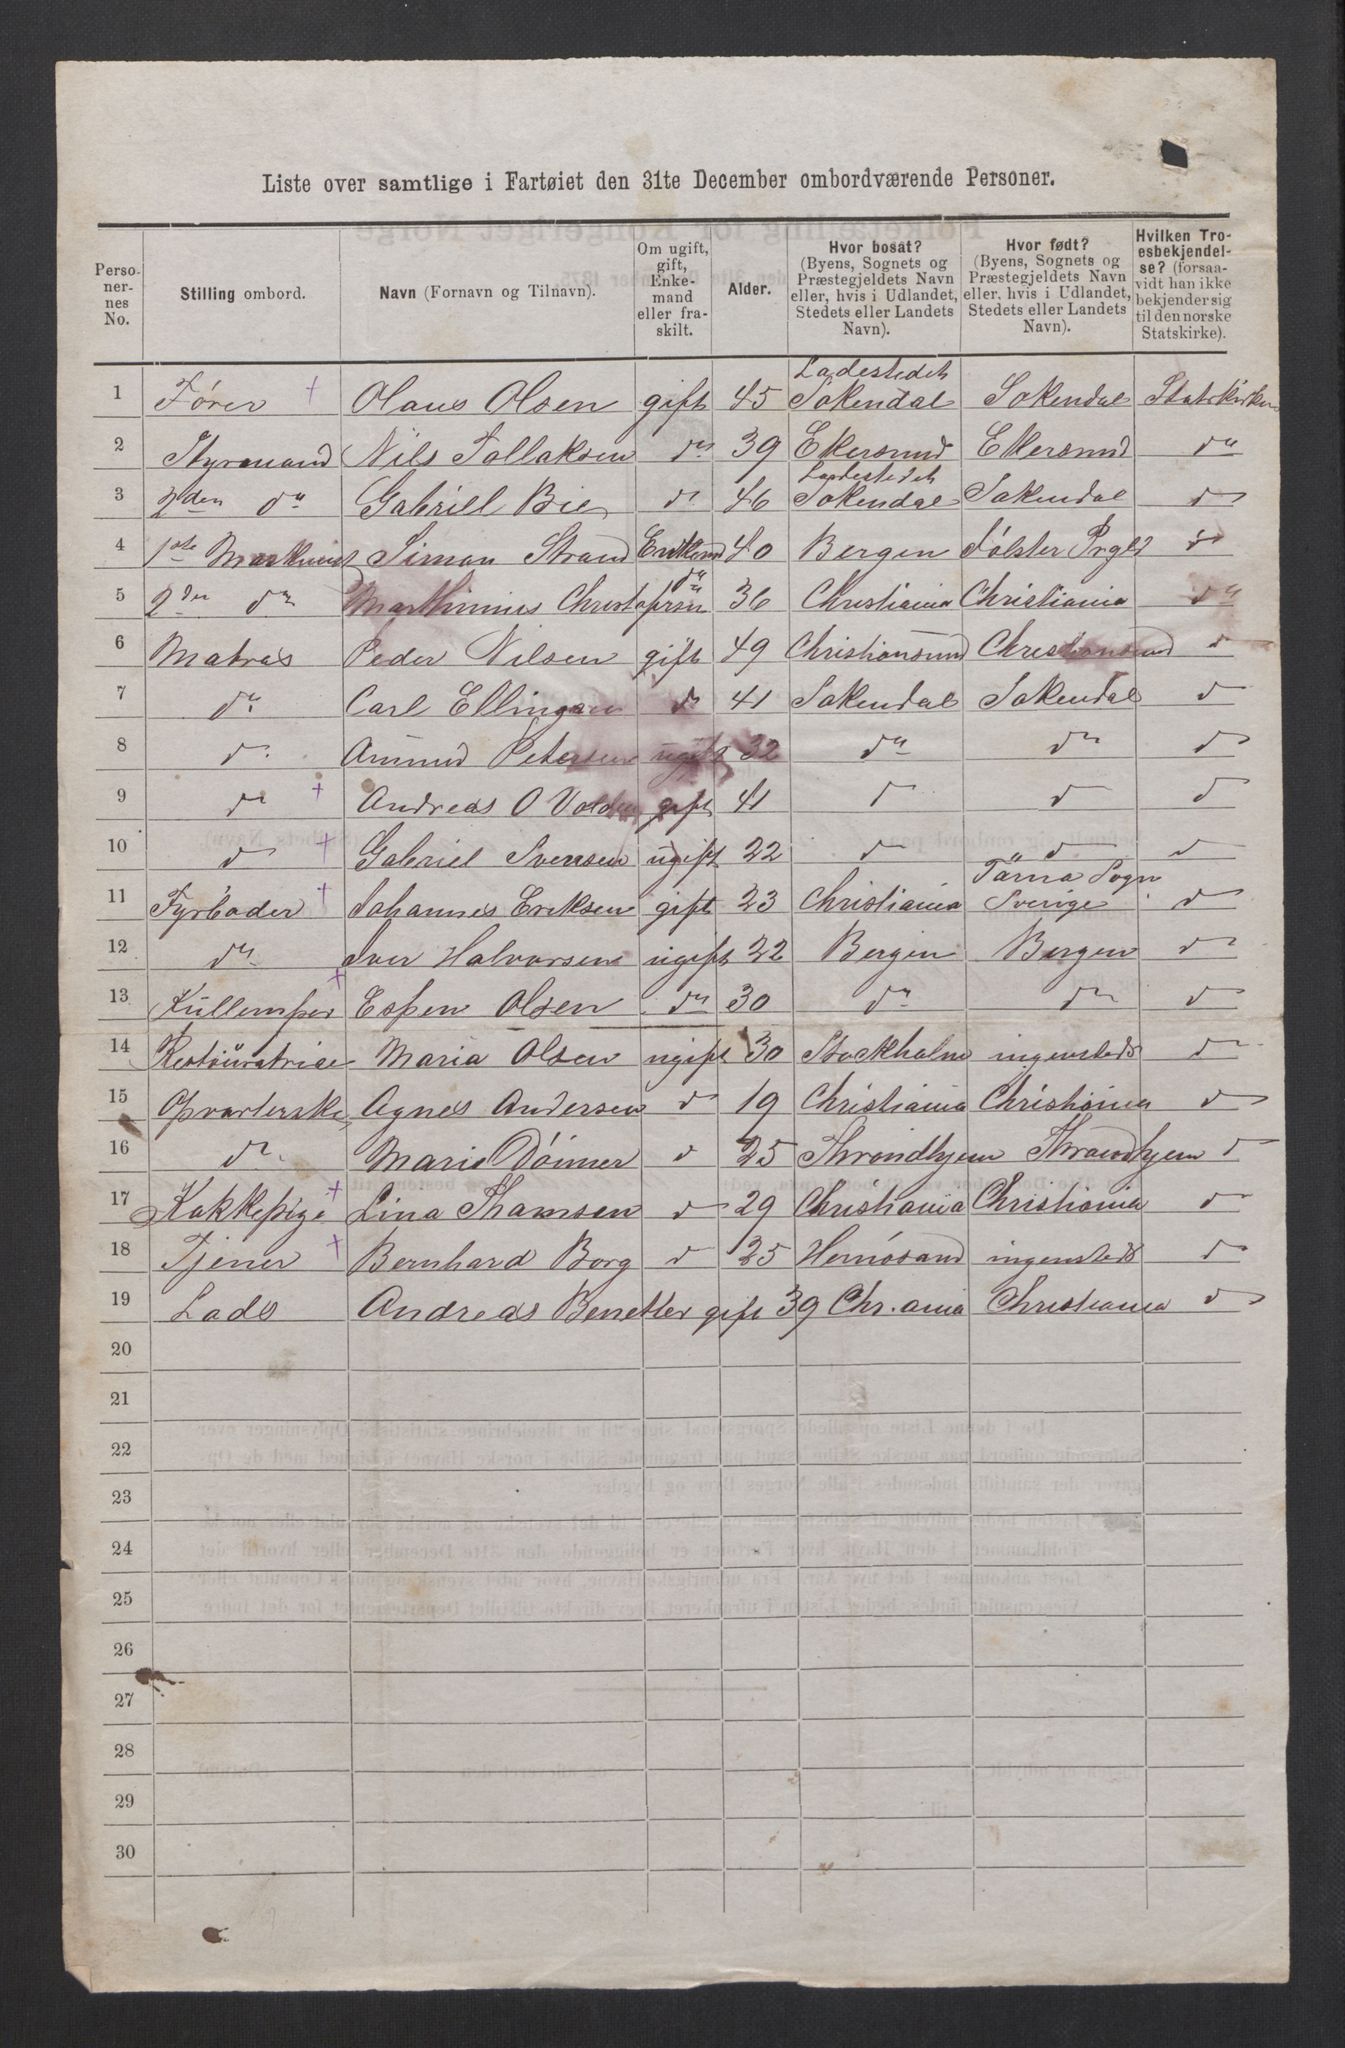 Liste over samtlige i Fartøiet den 31te December ombordværende Personer.
Perso-ner-nes No. | Stilling ombord. | Navn (Fornavn og Tilnavn). | Om ugift, gift, Enke-mand eller fra-skilt. | Alder. | Hvor bosat? (Byens, Sognets og Præstegjeldets Navn eller, hvis i Udlandet, Stedets eller Landets Navn). | Hvor født? (Byens, Sognets og Præstegjeldets Navn eller, hvis i Udlandet, Stedets eller Landets Navn). | Hvilken Tro-esbekjendel-se? (forsaa-vidt han ikke bekjender sig til den norske Statskirke).
1 Fører + Olaus Olsen gift 45 Ladestedet Sokendal Sokendal Statskirken
2 Styrmand Nils Tollaksen do 39 Ekersund Ekersund do
3 2den do Gabriel Bie d 46 Ladestedet Sokendal Sokendal d
4 1ste Maskinist Simon Strand Enkemd 40 Bergen Følster Prgld d
5 2den do Marthinius Christofersen do 36 Christiania Christiania do
6 Matros Peder Nilsen gift 49 Christiansund Christiansund d
7 do Carl Ellingsen do 41 Sokendal Sokendal d
8 d Amund Petersen ugift 32 do do d
9 d + Andreas O Volden gift 41 d d d
10 d + Gabriel Svensen ugift 22 d d d
11 Fyrbøder + Johannes Eriksen gift 23 Christiania Tärna Sogn Sverige d
12 do Iver Halvorsen ugift 22 Bergen Bergen d
13 Kullemper + Espen Olsen do 30 do do d
14 Restauratrice Maria Olsen ugift 30 Stockholm ingensteds d
15 Opvarterske Agnes Andersen d 19 Christiania Christiania d
16 do Marie Dönner d 25 Throndhjem Throndhjem d
17 Kokkepige + Lina Thamsen d 29 Christiania Christiania d
18 Tjener + Bernhard Borg d 25 Hernösand ingensteds d
19 Lods Andreas Benetter gift 39 Chr.ania Christiania d
20
21
22
23
24
25
26
27
28
29
30